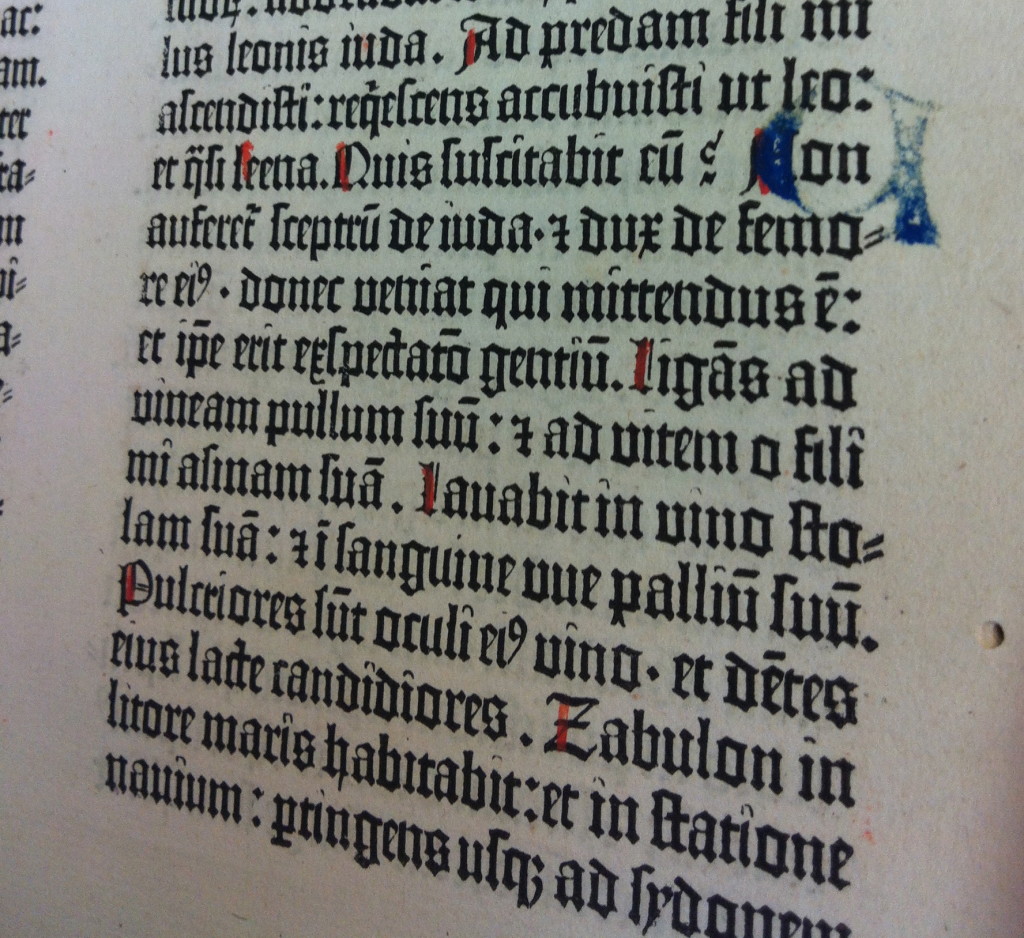 lus leonis iuda. Ad predam fili mi
ascendisti: req̄escens accubuisti ut leo:
et q̄si leena. Quis suscitabit eū? Non
auferet᷑ sceptrū de iuda· ⁊ dux de femo⸗
re eiꝰ· donec veniat qui mittendus ē:
et ip̄e erit exspectatō gentiū. Ligās ad
vineam pullum suū: ⁊ ad vitem o fili
mi asinam suā. Lavabit in vino sto⸗
lam suā: ⁊ ī sanguine vve palliū suū.
Pulcriores sūt oculi eiꝰ vino· et dētes
eius lacte candidiores. Zabulon in
litore maris habitabit: et in statione
navium: ꝑtingens usqꝫ ad sydonem